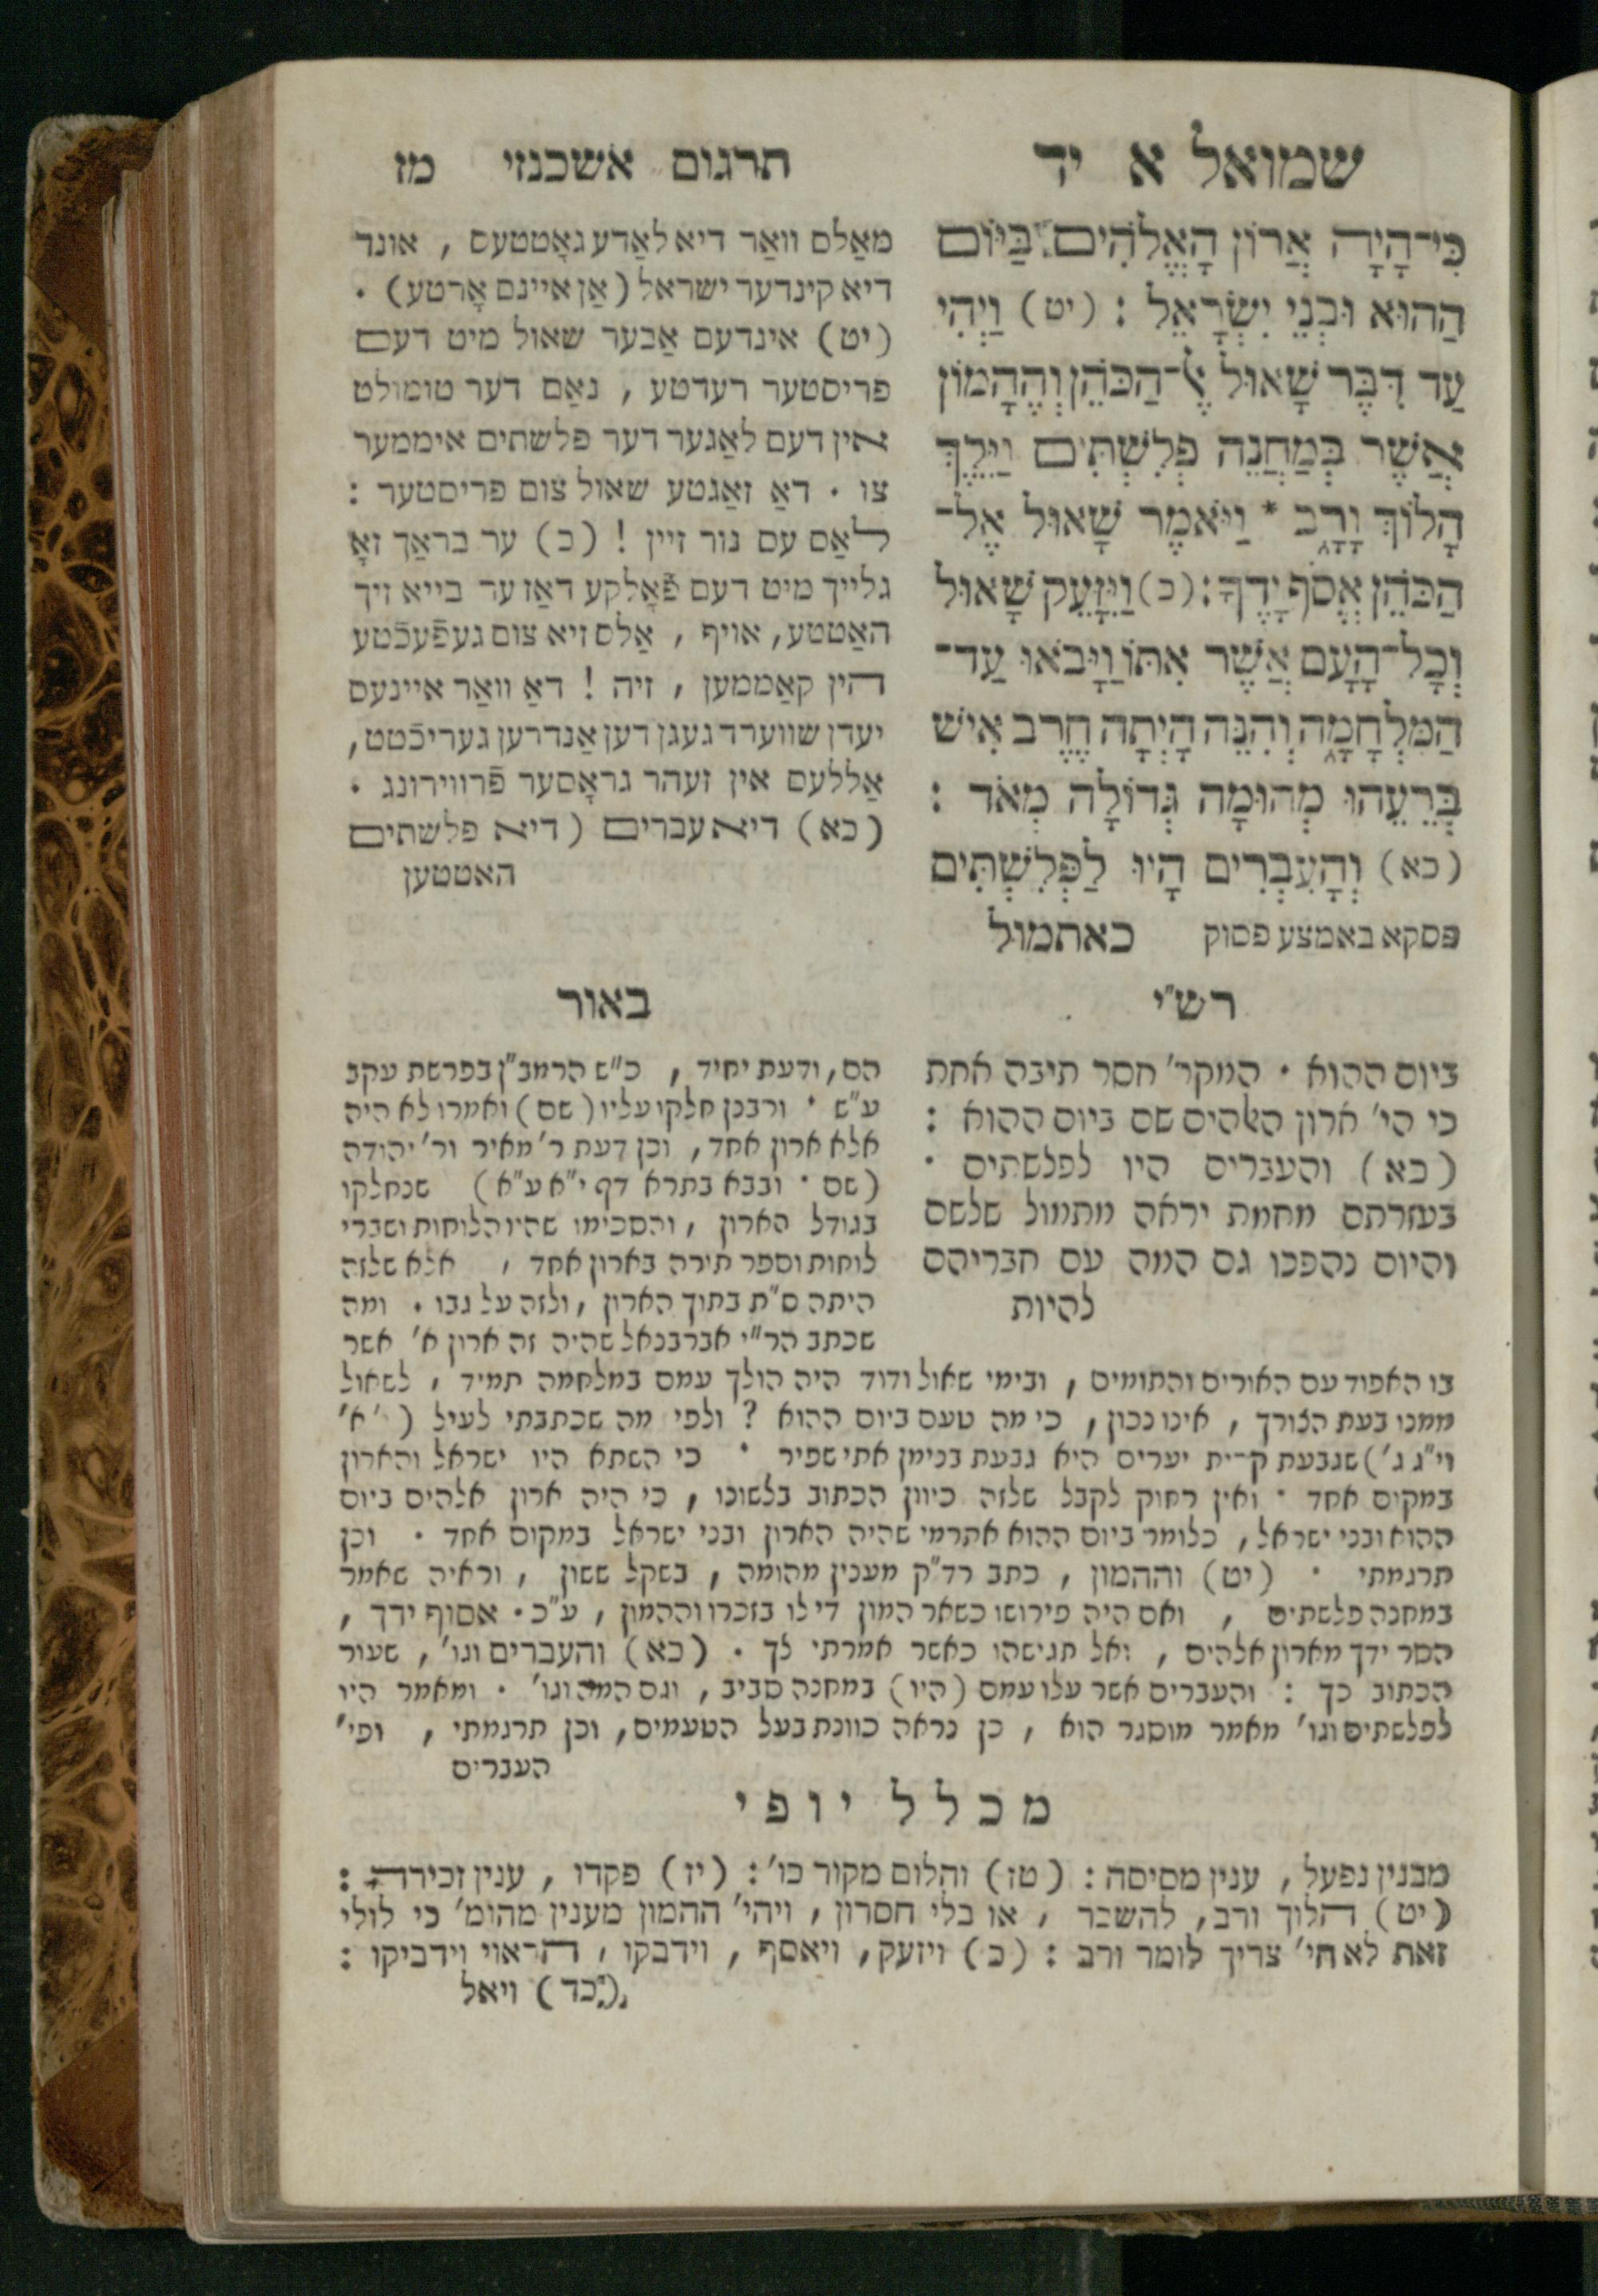 שמואל א יד
תרגום אשכנזי מז
כִּי־הָיָה אֲרוֹן הָאֱלֹהִים בַּיּוֹם
הַהוּא וּבְנֵי יִשְׂרָאֵל : (יט) וַיְהִי
עַד דִּבֶּר שָׁאוּל אֶל־הַכֹּהֵן וְהֶהָמוֹן
אֲשֶׁר בְּמַחֲנֵה פְלִשְׁתִּים וַיֵּלֶךְ
הָלוֹךְ וָרָב * וַיֹּאמֶר שָׁאוּל אֶל־
הַכֹּהֵן אֱסֹף יָדֶךָ : (כ) וַיִּזָּעֵק שָׁאוּל
וְכָל־הָעָם אֲשֶׁר אִתּוֹ וַיָּבֹאוּ עַד־
הַמִּלְחָמָה וְהִנֵּה הָיְתָה חֶרֶב אִישׁ
בְּרֵעֵהוּ מְהוּמָה גְּדוֹלָה מְאֹד :
(כא) וְהָעִבְרִים הָיוּ לַפְּלִשְׁתִּים
פסקא באמצע פסוק כאתמול
מאַלס וואַר דיא לאַדע גאָטטעס , אונד
דיא קינדער ישראל (אַן איינם אָרטע) .
(יט) אינדעם אַבער שאול מיט דעם
פריסטער רעדטע , נאַם דער טומולט
אין דעם לאַגער דער פלשתים איממער
צו . דאַ זאַגטע שאול צום פריסטער :
לאַס עס נור זיין ! (כ) ער בראַך זאָ
גלייך מיט דעם פֿאָלקע דאַז ער בייא זיך
האַטטע, אויף , אַלס זיא צום געפֿעכֿטע
הין קאַממען , זיה ! דאַ וואַר איינעס
יעדן שווערד געגן דען אַנדרען געריכֿטט,
אַללעס אין זעהר גראָסער פֿרווירונג .
(כא) דיא עברים (דיא פלשתים
האטטען
רש"י
ביום ההוא . המקר' חסר תיבה אחת
כי הי' ארון האלהים שם ביום ההוא :
(כא) והעברים היו לפלשתים .
בעזרתם מחמת יראה מתמול שלשם
והיום נהפכו גם המה עם חבריהם
להיות
באור
הם, ודעת יחיד , כ"ש הרמב"ן בפרשת עקב
ע"ש . ורבנן חלקו עליו (שם) ואמרו לא היה
אלא ארון אחד, וכן דעת ר' מאיר ור' יהודה
(שם . ובבא בתרא דף י"א ע"א) שנחלקו
בגודל הארון , והסכימו שהיו הלוחות ושברי
לוחות וספר תורה בארון אחד , אלא שלזה
היתה ס"ת בתוך הארון , ולזה על גבו . ומה
שכתב הר"י אברבנאל שהיה זה ארון א' אשר
בו האפוד עם האורים והתומים , ובימי שאול ודוד היה הולך עמם במלחמה תמיד , לשאול
ממנו בעת הצורך , אינו נכון, כי מה טעם ביום ההוא ? ולפי מה שכתבתי לעיל ( י' א'
וי"ג ג') שגבעת קרית יערים היא גבעת בנימן אתי שפיר . כי השתא היו ישראל והארון
במקום אחד . ואין רחוק לקבל שלזה כיוון הכתוב בלשונו , כי היה ארון אלהים ביום
ההוא ובני ישראל, כלומר ביום ההוא אקרמי שהיה הארון ובני ישראל במקום אחד . וכן
תרגמתי . (יט) וההמון , כתב רד"ק מענין מהומה , בשקל ששון , וראיה שאמר
במחנה פלשתים , ואם היה פירושו כשאר המון די לו בזכרו וההמון , ע"כ . אסוף ידך ,
הסר ידך מארון אלהים , ואל תגישהו כאשר אמרתי לך . (כא) והעברים וגו' , שעור
הכתוב כך : והעברים אשר עלו עמם (היו) במחנה סביב , וגם המה וגו' . ומאמר היו
לפלשתים וגו' מאמר מוסגר הוא , כן נראה כוונת בעל הטעמים, וכן תרגמתי , ופי'
העברים
מכלל יופי
מבנין נפעל , ענין מסיסה : (טז) והלום מקור כו' : (יז) פקדו , ענין זכירה :
(יט) הלוך ורב, להשבר , או בלי חסרון , ויהי' ההמון מענין מהומ' כי לולי
זאת לא הי' צריך לומר ורב : (כ) ויזעק, ויאסף , וידבקו , הראוי וידביקו :
(כד) ויאל